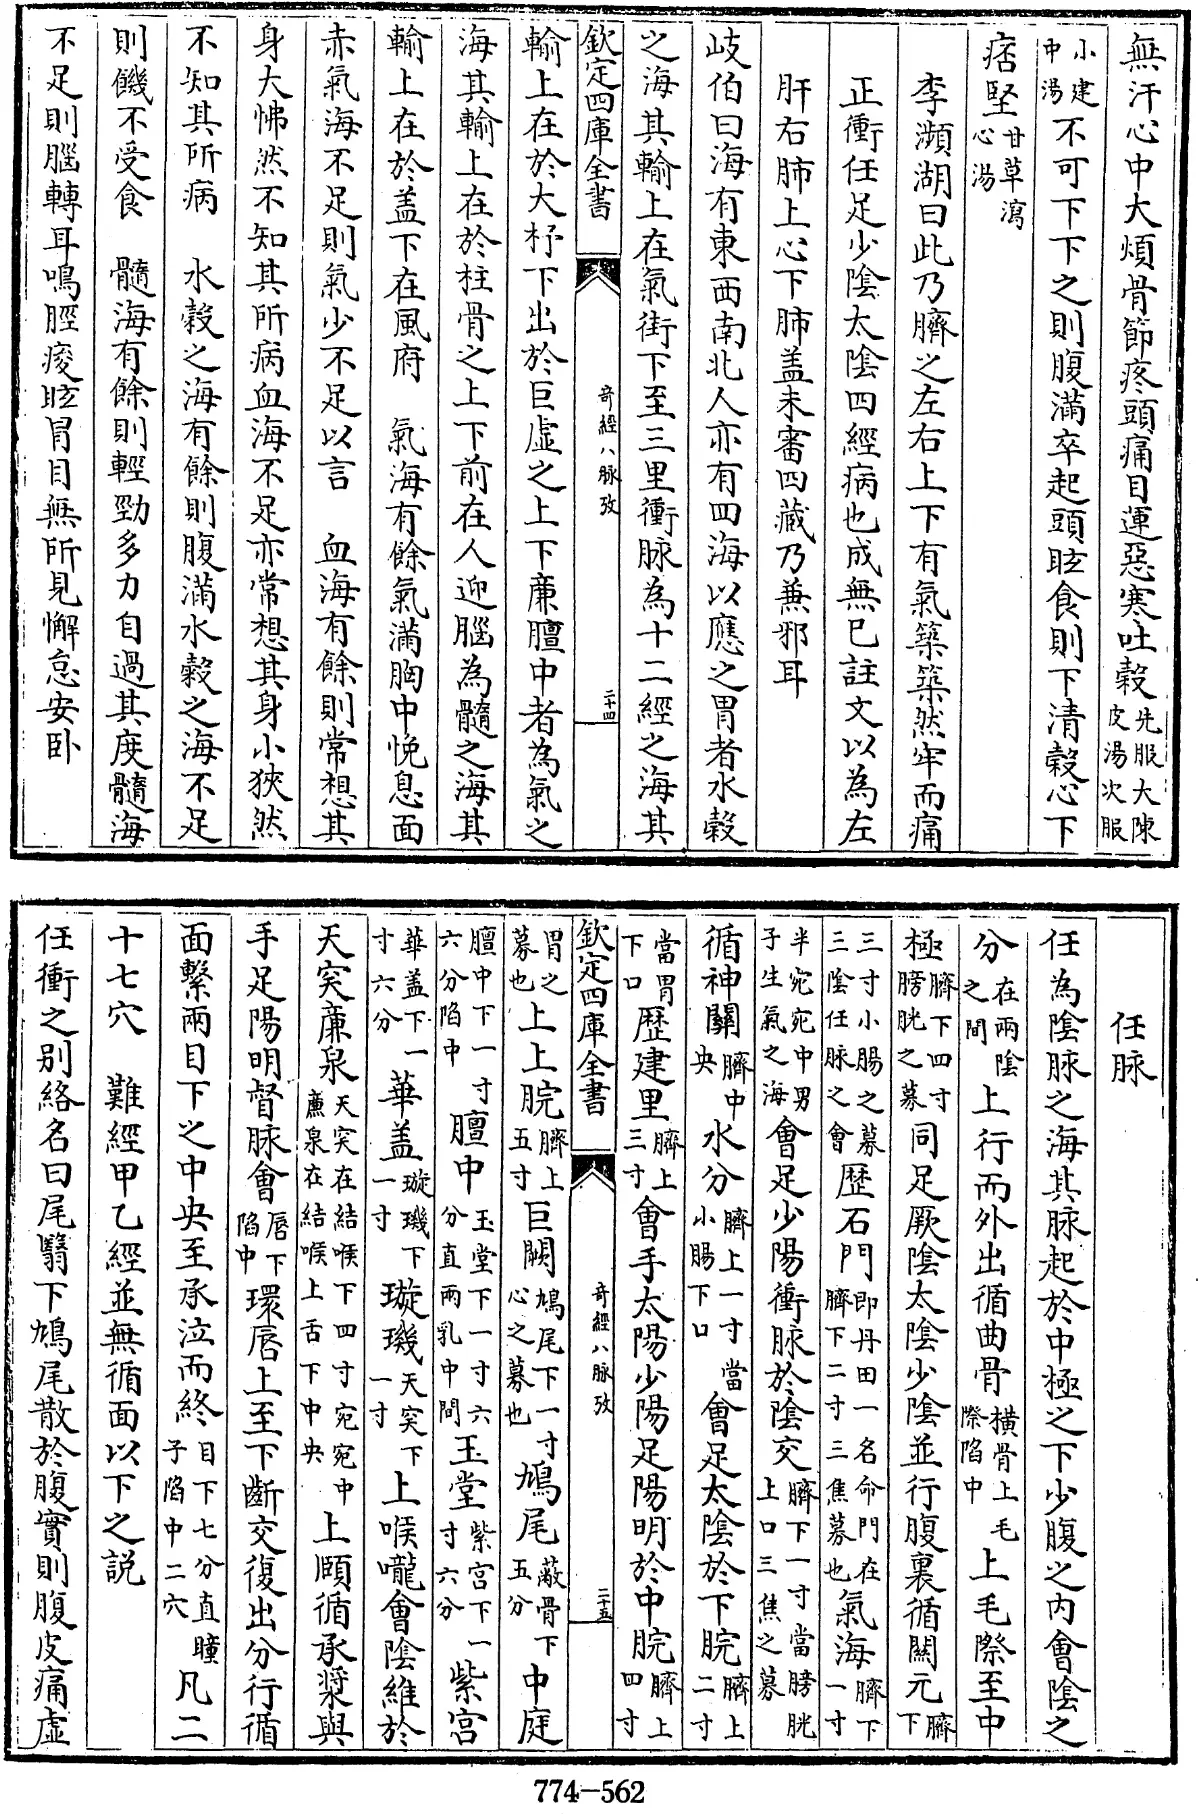 無汗心中大煩骨節疼頭痛目運惡寒吐穀先服大陳皮湯次服
小建中湯不可下下之則腹滿卒起頭眩食則下清穀心下
痞堅甘草瀉心湯
李瀕湖曰此乃臍之左右上下有氣築築然牢而痛
正衝任足少陰太陰四經病也成無已註文以為左
肝右肺上心下肺盖未審四藏乃兼邪耳
岐伯曰海有東西南北人亦有四海以應之胃者水穀
之海其輸上在氣街下至三里衝脉為十二經之海其
欽定四庫全書
奇經八脉攷
二十四
輸上在於大杼下出於巨虛之上下亷膻中者為氣之
海其輸上在於柱骨之上下前在人迎腦為髓之海其
輸上在於盖下在風府 氣海有餘氣滿胸中悗息面
赤氣海不足則氣少不足以言 血海有餘則常想其
身大怫然不知其所病血海不足亦常想其身小狹然
不知其所病 水穀之海有餘則腹滿水穀之海不足
則饑不受食 髓海有餘則輕勁多力自過其度髓海
不足則腦轉耳鳴脛痠眩冒目無所見懈怠安卧
任脉
任為陰脉之海其脉起於中極之下少腹之内會陰之
分在兩陰之間上行而外出循曲骨橫骨上毛際陷中上毛際至中
極臍下四寸膀胱之募同足厥陰太陰少陰並行腹裏循關元臍下
三寸小腸之募三陰任脉之會歷石門即丹田一名命門在臍下二寸三焦募也氣海臍下一寸
半宛宛中男子生氣之海會足少陽衝脉於陰交臍下一寸當膀胱上口三焦之募
循神闕臍中央水分臍上一寸當小腸下口會足太陰於下脘臍上二寸
當胃下口歷建里臍上三寸會手太陽少陽足陽明於中脘臍上四寸
欽定四庫全書
奇經八脉攷
二十五
胃之募也上上脘臍上五寸巨闕鳩尾下一寸心之募也鳩尾蔽骨下五分中庭
膻中下一寸六分陷中膻中玉堂下一寸六分直兩乳中間玉堂紫宮下一寸六分紫宮
華盖下一寸六分華盖璇璣下一寸璇璣天突下一寸上喉嚨會陰維於
天突廉泉天突在結喉下四寸宛宛中廉泉在結喉上舌下中央上頤循承漿與
手足陽明督脉會唇下陷中環唇上至下齗交復出分行循
面繫兩目下之中央至承泣而終目下七分直瞳子陷中二穴凡二
十七穴 難經甲乙經並無循面以下之說
任衝之别絡名曰尾翳下鳩尾散於腹實則腹皮痛虛
774-562